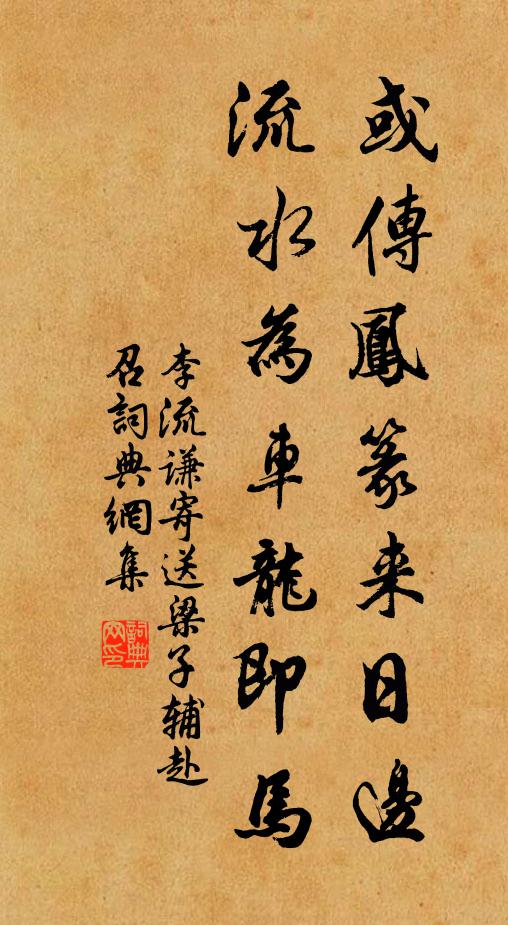 或傳鳳篆来日邊
流水為車龍即馬
李流谦寄送梁子辅赴
召詞典網集
詞典
网印